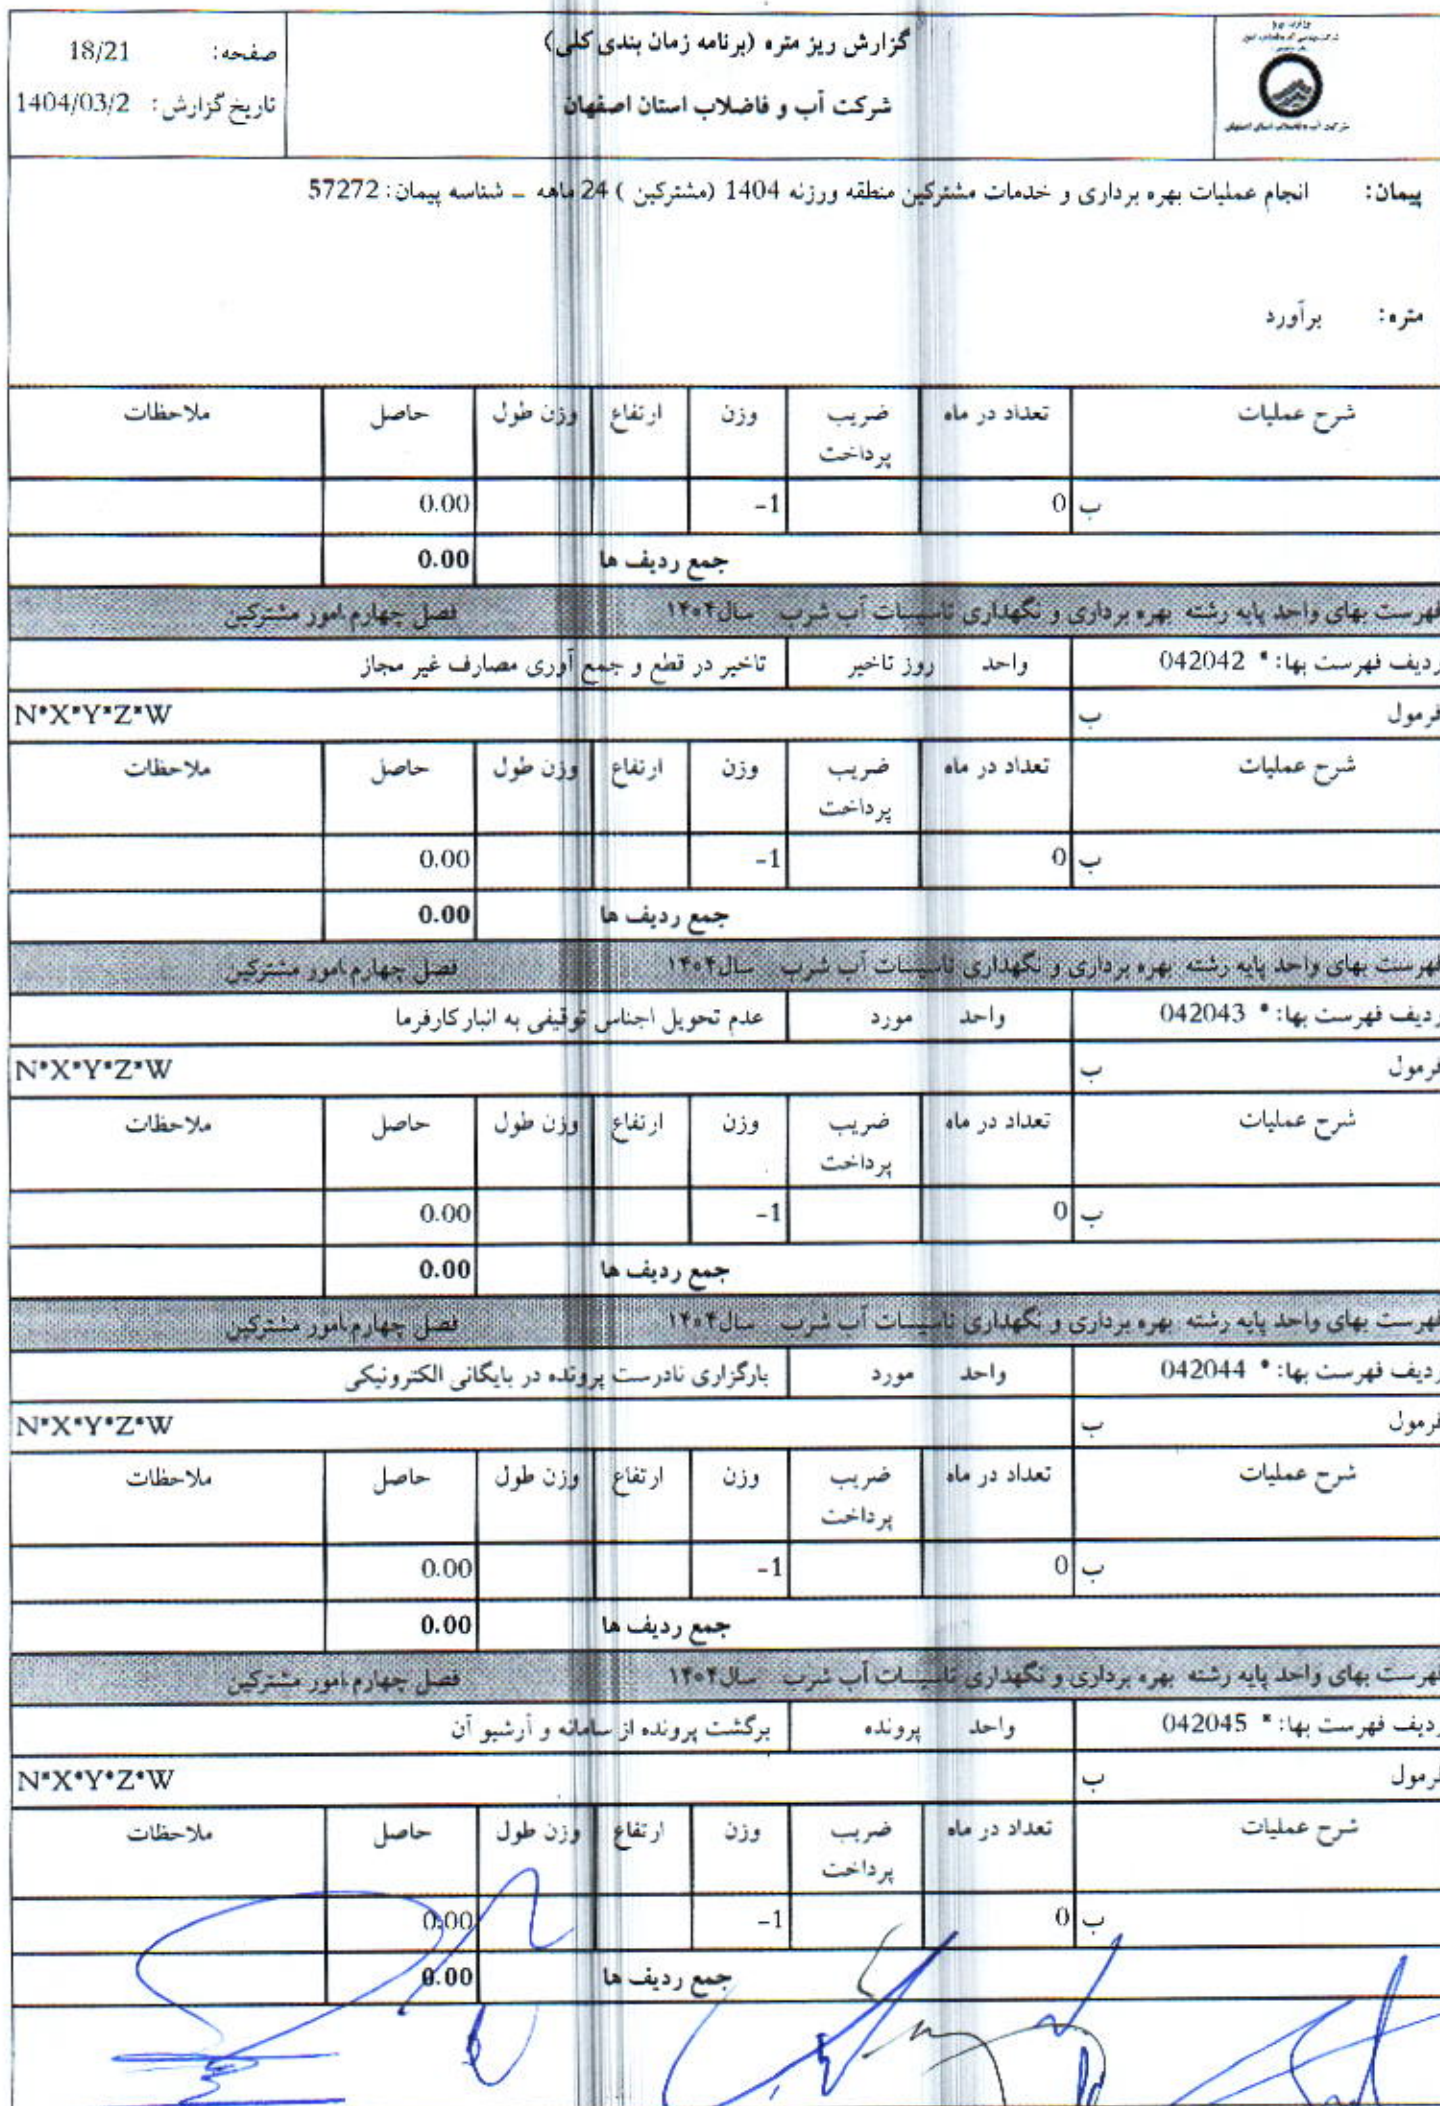 گزارش ریز متره (برنامه زمان بندی کلی)
شرکت آب و فاضلاب استان اصفهان
صفحه: 18/21
تاریخ گزارش: 1404/03/2
شرکت آب و فاضلاب استان اصفهان
پیمان: انجام عملیات بهره برداری و خدمات مشترکین منطقه ورزنه 1404 (مشترکین ) 24 ماهه - شناسه پیمان: 57272
متره: برآورد
شرح عملیات تعداد در ماه ضریب پرداخت وزن ارتفاع وزن طول حاصل ملاحظات
ب 0 -1 0.00
جمع ردیف ها 0.00
فهرست بهای واحد پایه رشته بهره برداری و نگهداری تاسیسات آب شرب سال۱۴۰۴ فصل چهارم.امور مشترکین
ردیف فهرست بها: * 042042 واحد روز تاخیر تاخیر در قطع و جمع آوری مصارف غیر مجاز
فرمول ب N*X*Y*Z*W
شرح عملیات تعداد در ماه ضریب پرداخت وزن ارتفاع وزن طول حاصل ملاحظات
ب 0 -1 0.00
جمع ردیف ها 0.00
فهرست بهای واحد پایه رشته بهره برداری و نگهداری تاسیسات آب شرب سال۱۴۰۴ فصل چهارم.امور مشترکین
ردیف فهرست بها: * 042043 واحد مورد عدم تحویل اجناس توقیفی به انبار کارفرما
فرمول ب N*X*Y*Z*W
شرح عملیات تعداد در ماه ضریب پرداخت وزن ارتفاع وزن طول حاصل ملاحظات
ب 0 -1 0.00
جمع ردیف ها 0.00
فهرست بهای واحد پایه رشته بهره برداری و نگهداری تاسیسات آب شرب سال۱۴۰۴ فصل چهارم.امور مشترکین
ردیف فهرست بها: * 042044 واحد مورد بارگزاری نادرست پرونده در بایگانی الکترونیکی
فرمول ب N*X*Y*Z*W
شرح عملیات تعداد در ماه ضریب پرداخت وزن ارتفاع وزن طول حاصل ملاحظات
ب 0 -1 0.00
جمع ردیف ها 0.00
فهرست بهای واحد پایه رشته بهره برداری و نگهداری تاسیسات آب شرب سال۱۴۰۴ فصل چهارم.امور مشترکین
ردیف فهرست بها: * 042045 واحد پرونده برگشت پرونده از سامانه و آرشیو آن
فرمول ب N*X*Y*Z*W
شرح عملیات تعداد در ماه ضریب پرداخت وزن ارتفاع وزن طول حاصل ملاحظات
ب 0 -1 0.00
جمع ردیف ها 0.00